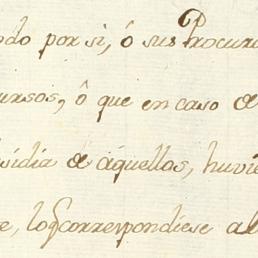 odo por si, ó sus Procura
ursos, ô que en caso de
sidia de aquellos, huvie
e, loq correspondiese al